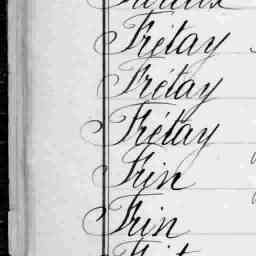 Frétay
Frétay
Frétay
Frin
Frin